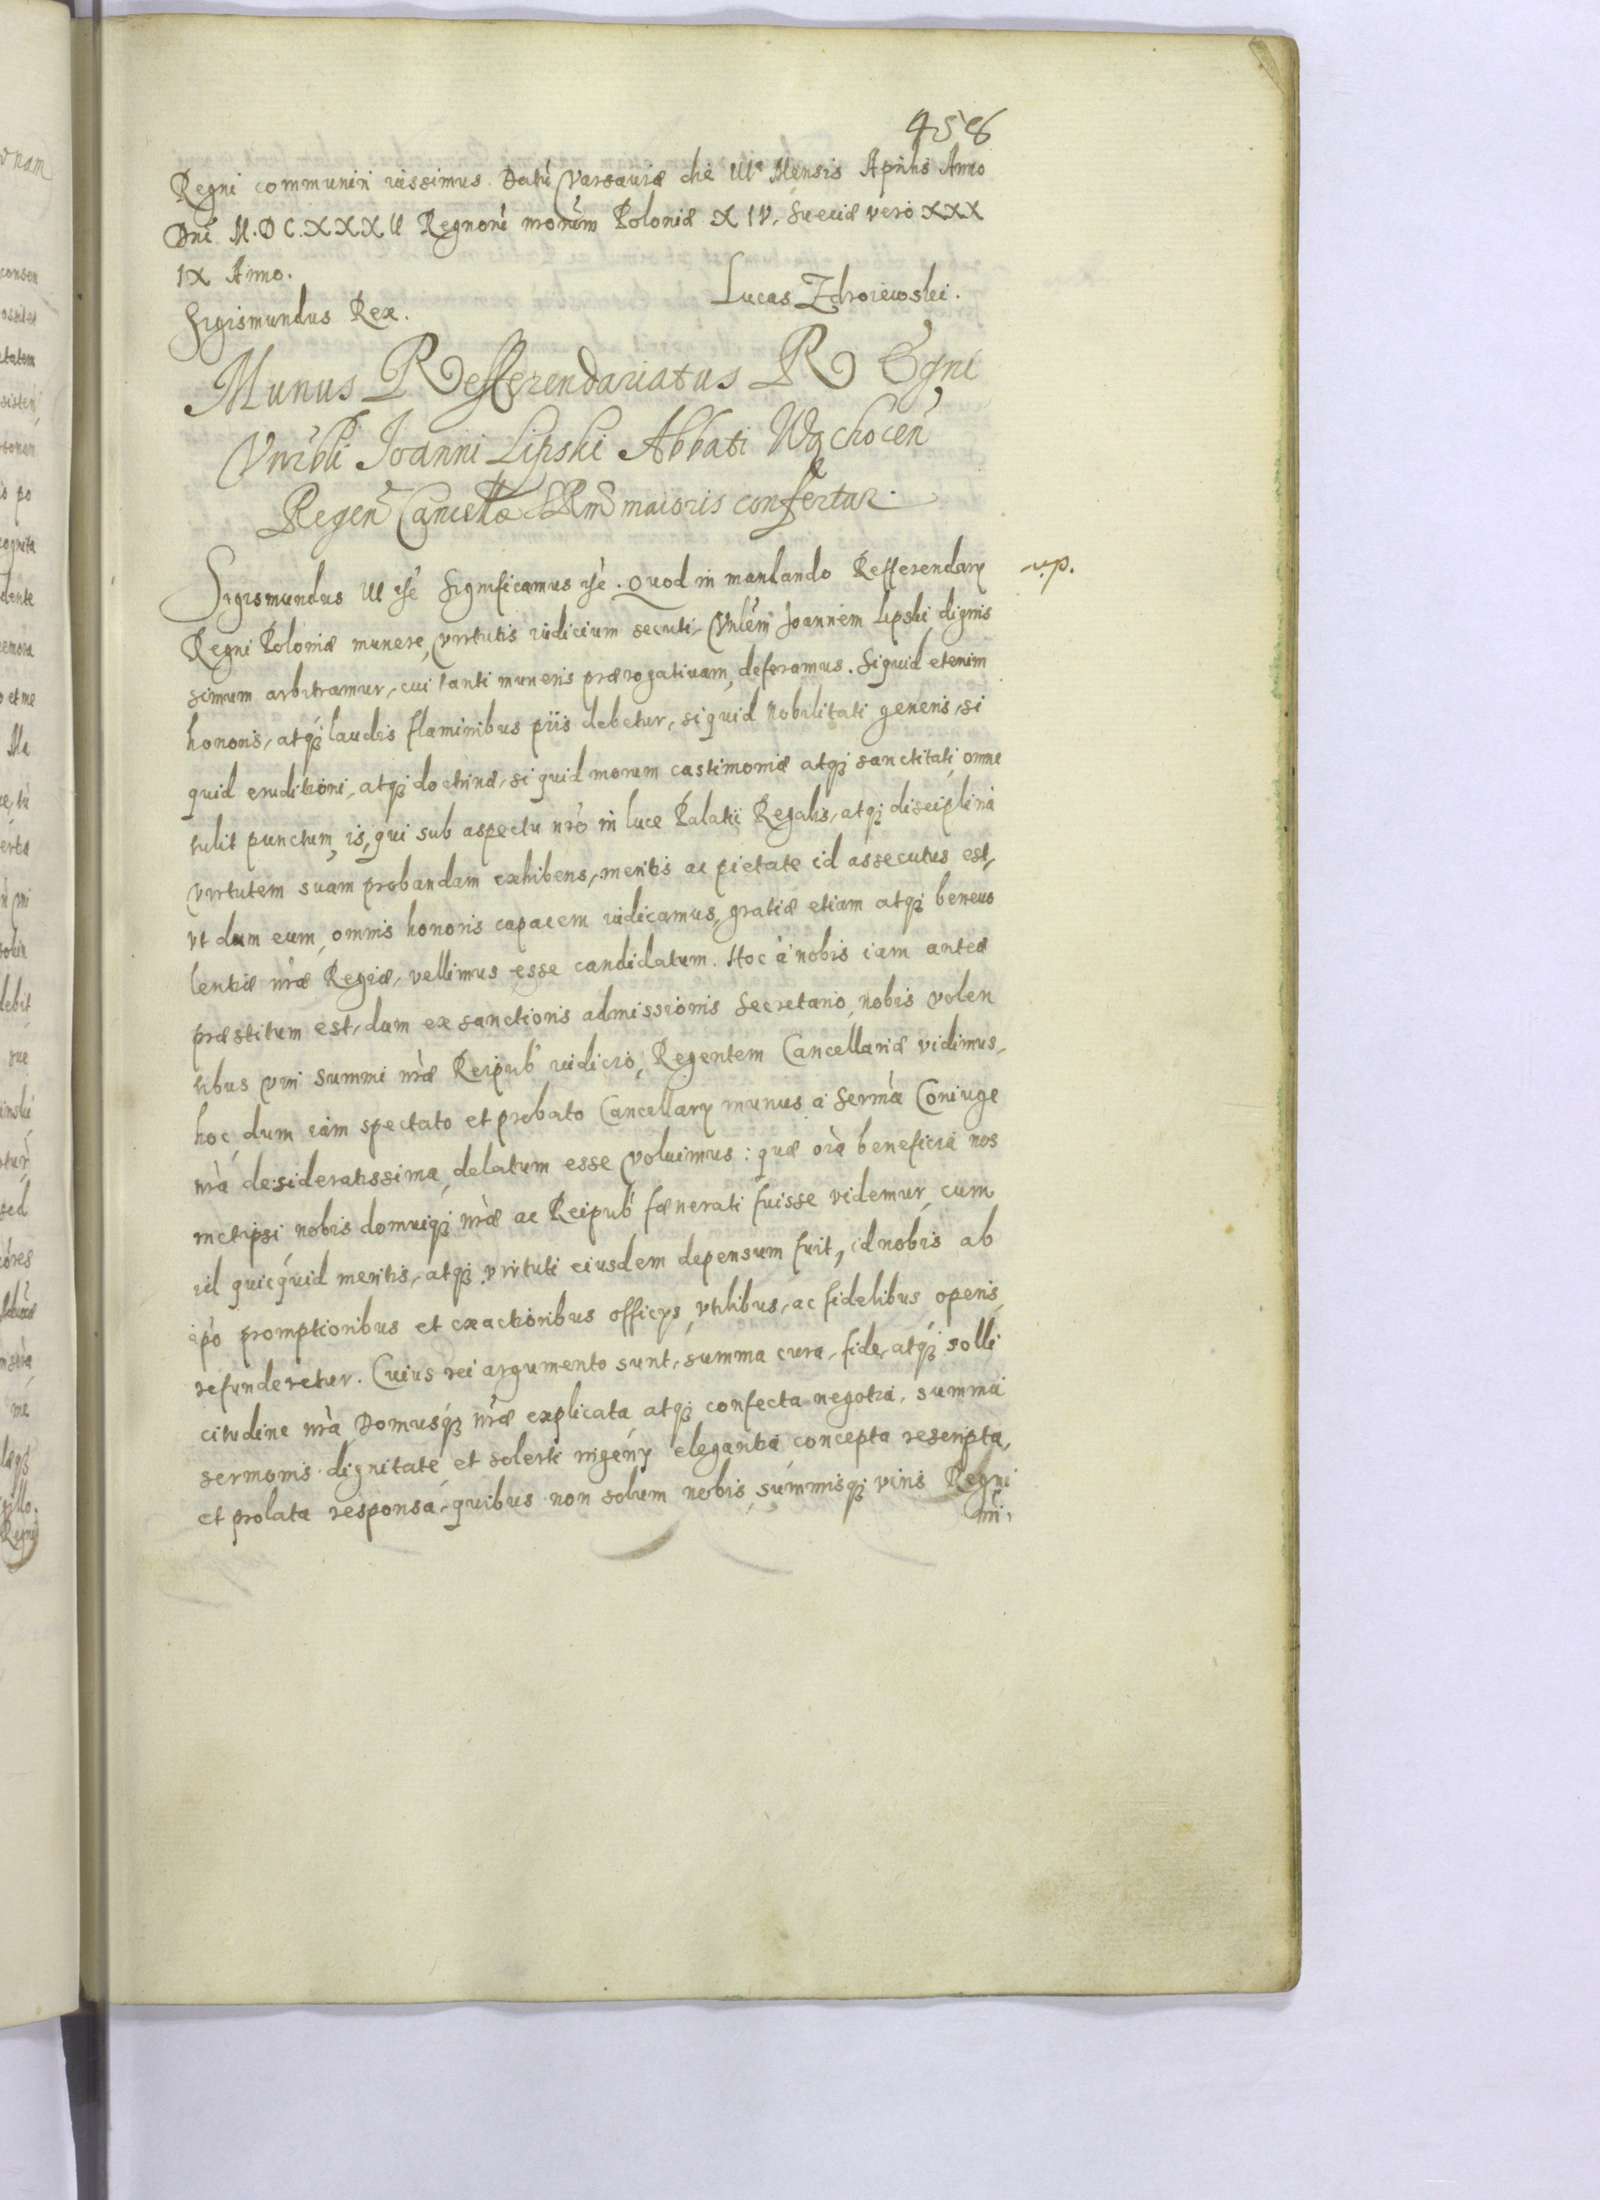 458
Regni communiri iussimus. Datũ Varsauiæ die Mensis Aprilis Anno
Dnĩ M.D C.XXXII Regnorũ nrorũm Poloniæ XIV. Sueciæ vero XXX
IX Anno.
Lucas Zdroiewski.
Sigismundus Rex.
Munus Refferendariatus REgni
Vnrbli Joanni Lipski Abbati Wąchocen̄
Regen̄ Cancellæ maioris confertur.
Sigismundus III Significamus. Quod in mandando Refferendarÿ
n.p.
Regni Poloniæ munere, virtutis iudicium secuti, Joannem Lipski dignis
simum arbitramur, cui tanti muneris prærogatiuam, deferamus. Siquid etenim
honoris, atq; laudis flaminibus piis debetur, siquid Nobilitati generis, si
quid eruditioni, atq; doctrinæ, si quid morum castimoniæ atq; sanctitati, omne
tulit punctum, is, qui sub aspectu nrõ in luce Palatii Regalis, atq; disciplina
virtutem suam probandam exhibens, meritis ac pietate id assecutus est,
vt dum eum, omnis honoris capacem iudicamus, gratiæ etiam atq; beneuo
lentiæ nr̃æ Regiæ, vellimus esse candidatum. Hoc à nobis iam antea
præstitum est, dum ex sanctioris admissionis Secretario, nobis volen
tibus viri summi nr̃æ Reipub iudicio, Regentem Cancellariæ vidimus,
hoc, dum iam spectato et probato Cancellarÿ munus a Serm̃a Coniuge
nr̃a desideratissima, delatum esse voluimus: quæ oĩa beneficia nos
metipsi nobis domuiq; nr̃æ ac Reipub fænerati fuisse videmur, cum
id quicquid meritis, atq; virtuti eiusdem depensum fuit, id nobis ab
ipo promptioribus et exactioribus officÿs, vtilibus, ac fidelibus, operis
refunderetur. Cuius rei argumento sunt, summa cura, fide, atq; solli
citudine nr̃a Domusq; nr̃æ explicata, atq; confecta negotia, summa
sermonis dignitate, et solerti ingenÿ elegantia concepta rescripta,
et prolata responsa, quibus non solum nobis, summisq; viris Regni
nr̃i,